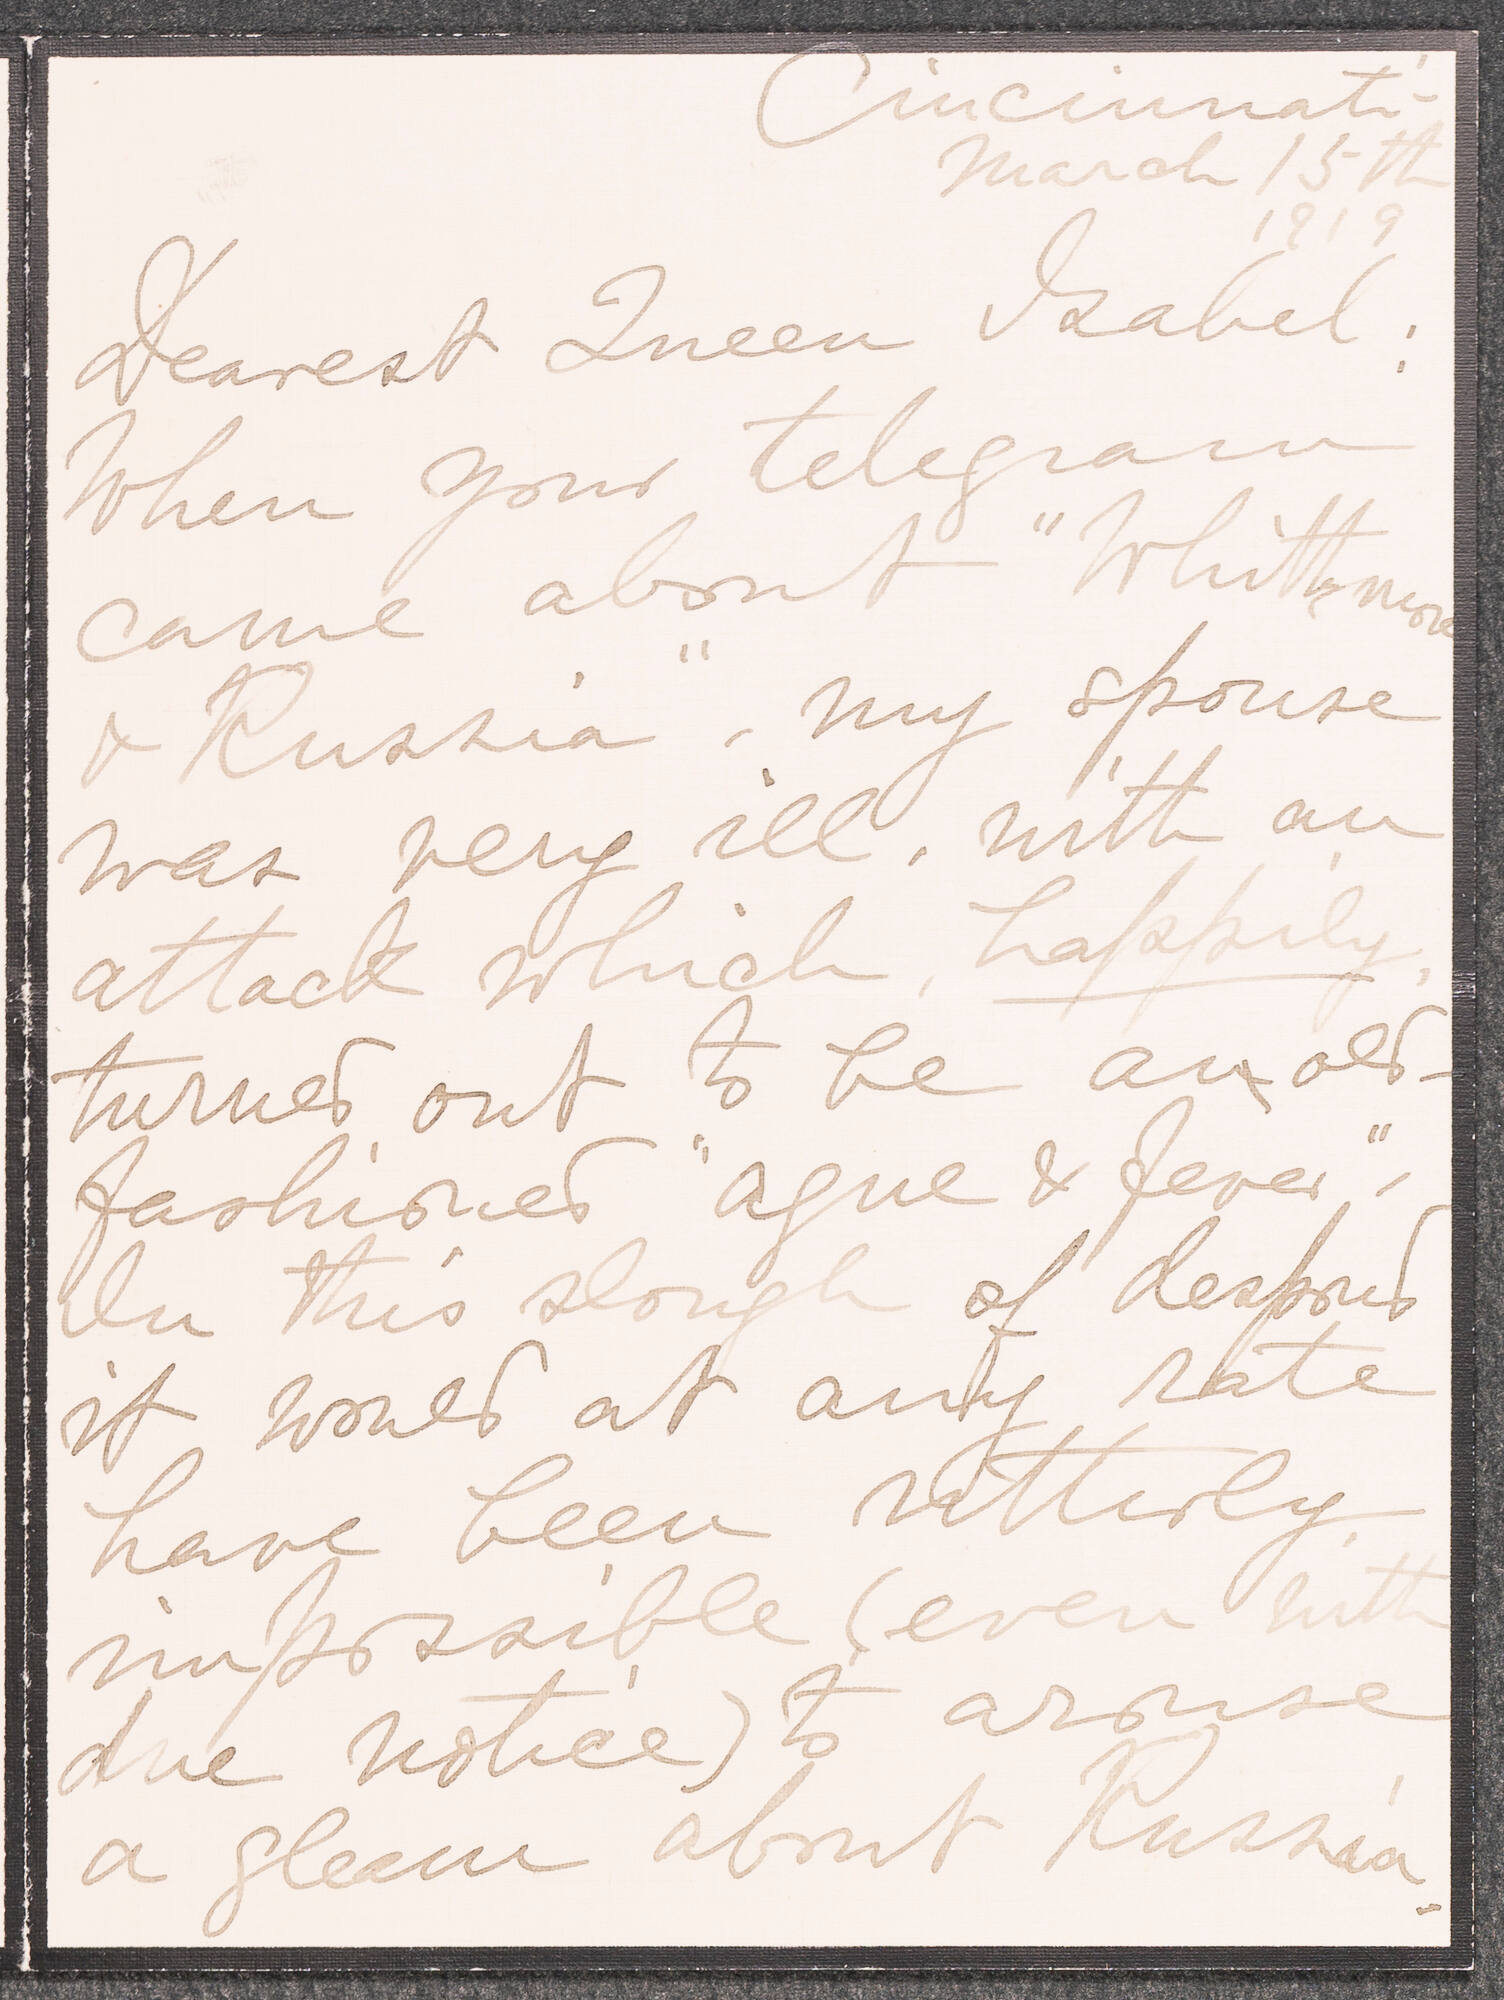 Cincinnati-
March 15th
1919
Dearest Queen Isabel:
When your telegram
came about "Whittemore
& Russia", my spouse
was very ill, with an
attack which, happily,
turned out to be an old-
fashioned "ague & fever".
In this slough of despond
it would at any rate
have been utterly
impossible (even with
due notice) to arouse
a gleam about Russia.